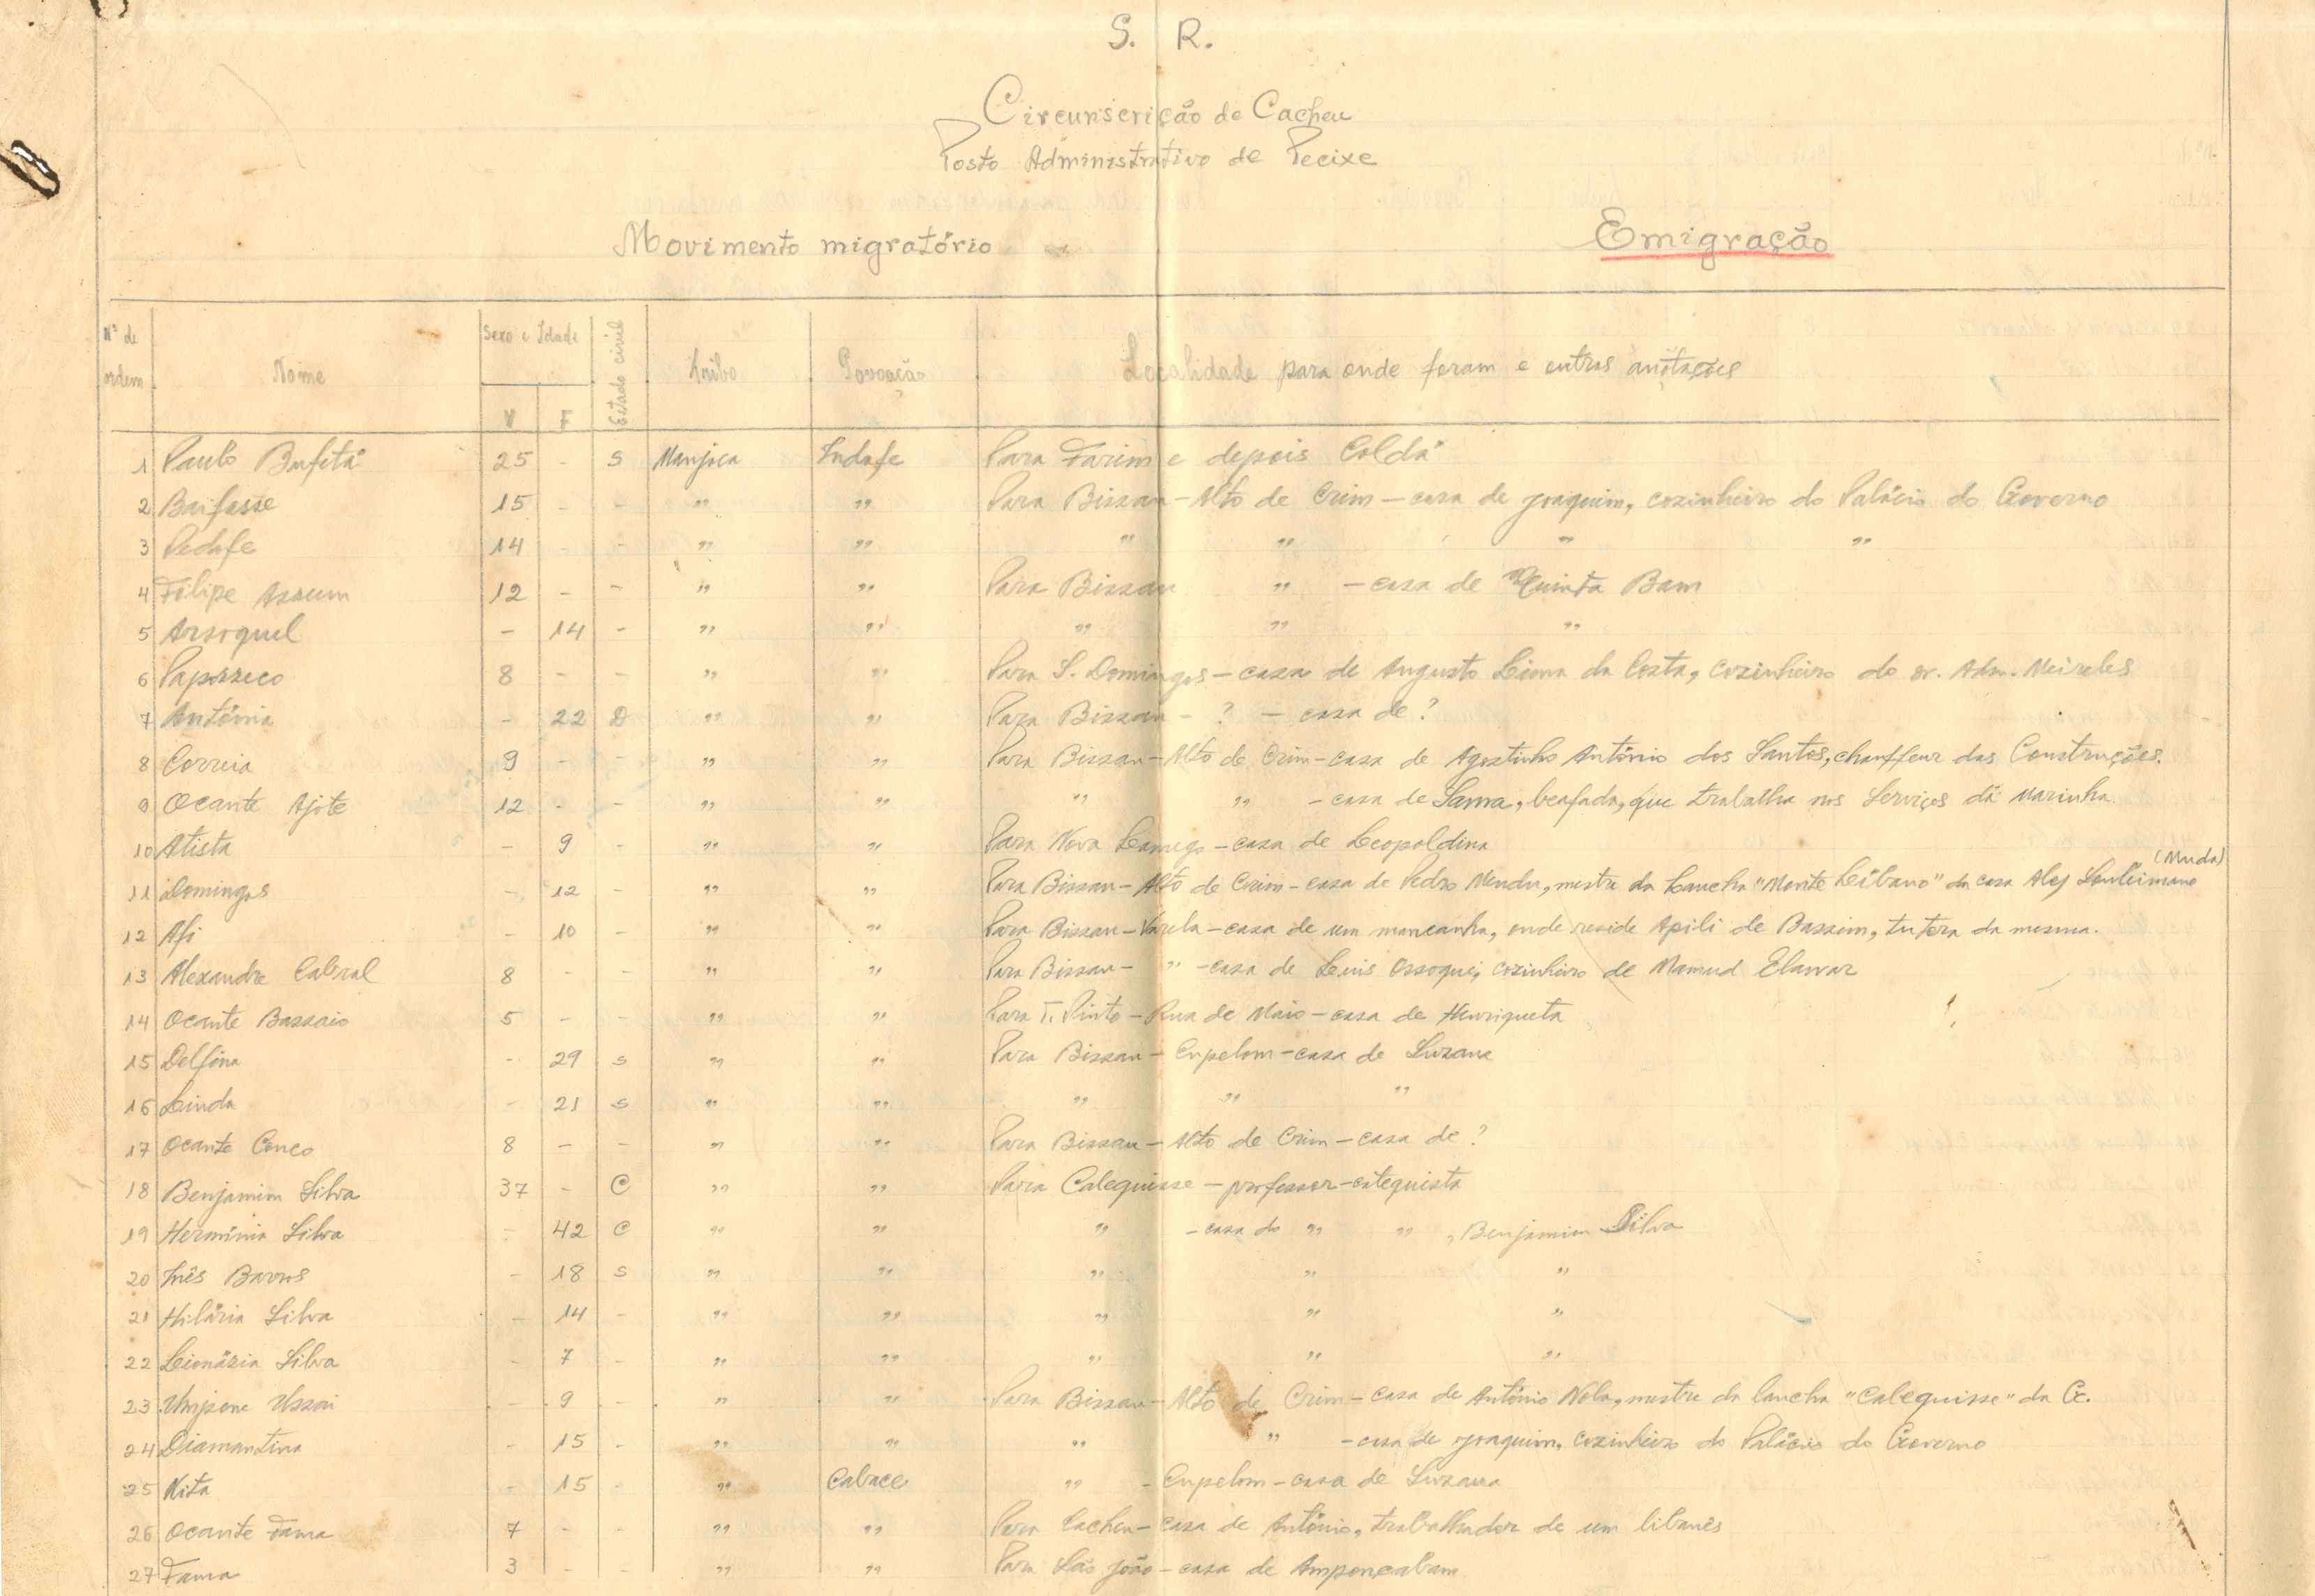 S. R.
Circunscrição de Cacheu
Posto Administrativo de Pecixe
Movimento migratório Emigração
Nº de ordem Nome Sexo e Idade V F Estado civil Tribo Povoação Localidade para onde foram e outras anotações
1 Paulo 25 - S Manjaca Indafe Para Farim e depois Coldá
2 Baifasse 15 - - " " Para Bissau - Alto de Crim - casa de Joaquim, cozinheiro do Palácio do Governo
3 Pedafe 14 - - " " " " " "
4 Filipe 12 - - " " Para Bissau " - casa de Quinta Bam
5 Arsoquel - 14 - " " " " "
6 8 - - " " Para S. Domingos - casa de Augusto Lima da Costa, cozinheiro do sr. Adm. Meireles
7 Antónia - 22 D " " Para Bissau - ? - casa de ?
8 Correia 9 - - " " Para Bissau - Alto de Crim - casa de Agostinho António dos Santos, chauffeur das Construções.
9 Ocante Ajote 12 - - " " " " - casa de Sama, beafada, que trabalha nos Serviços da Marinha
10 Atista - 9 - " " Para Nova Lamego - casa de Leopoldina
11 Domingas - 12 - " " Para Bissau - Alto de Crim - casa de Pedro Mendu, mestre da Lancha "Monte Líbano" da casa Aly Souleimane (Muda)
12 Afi - 10 - " " Para Bissau - Varela - casa de um mancanha, onde reside Apili de Bassim, tutora da mesma.
13 Alexandre Cabral 8 - - " " Para Bissau - " - casa de Luis Ossoqui, cozinheiro de Mamud Elawar
14 Ocante Bassaio 5 - - " " Para T. Pinto - Rua de Maio - casa de Henriqueta
15 Delfina - 29 S " " Para Bissau - Cupelom - casa de Suzana
16 Linda - 21 S " " " " "
17 Ocante Conco 8 - - " " Para Bissau - Alto de Crim - casa de ?
18 Benjamim Silva 37 - C " " Para Calequisse - professor-catequista
19 Hermínia Silva - 42 C " " " - casa do " " , Benjamim Silva
20 Inês Barros - 18 S " " " " "
21 Hilária Silva - 14 - " " " " "
22 Silva - 7 - " " " " "
23 Ussai - 9 - " " Para Bissau - Alto de Crim - casa de António Nola, mestre da lancha "Calequisse" da G.
24 Diamantina - 15 - " " " " - casa de Joaquim, cozinheiro do Palácio do Governo
25 Nita - 15 - " Cabace " - Cupelom - casa de Suzana
26 Ocante Fama 7 - - " " Para Cacheu - casa de António, trabalhador de um libanês
27 Fama 3 - - " " Para São João - casa de Amponcabam